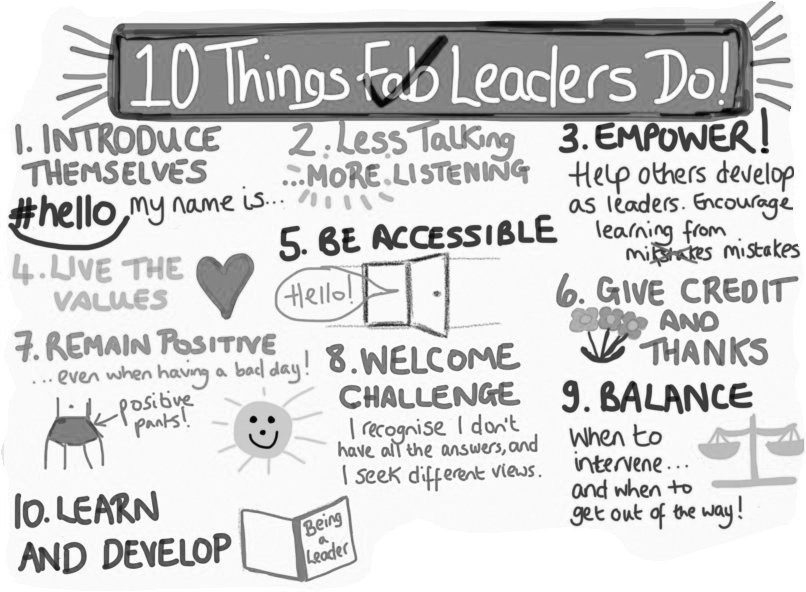 10 Things Fab Leaders Do!
1. INTRODUCE
THEMSELVES
#hello my name is...
2. Less Talking
...MORE LISTENING
3. EMPOWER!
Help others develop
as leaders. Encourage
learning from
mistakes mistakes
4. LIVE THE
VALUES
5. BE ACCESSIBLE
Hello!
6. GIVE CREDIT
AND
THANKS
7. REMAIN POSITIVE
...even when having a bad day!
positive
pants!
8. WELCOME
CHALLENGE
I recognise I don't
have all the answers, and
I seek different views.
9. BALANCE
When to
intervene...
and when to
get out of the way!
10. LEARN
AND DEVELOP
Being
a
Leader